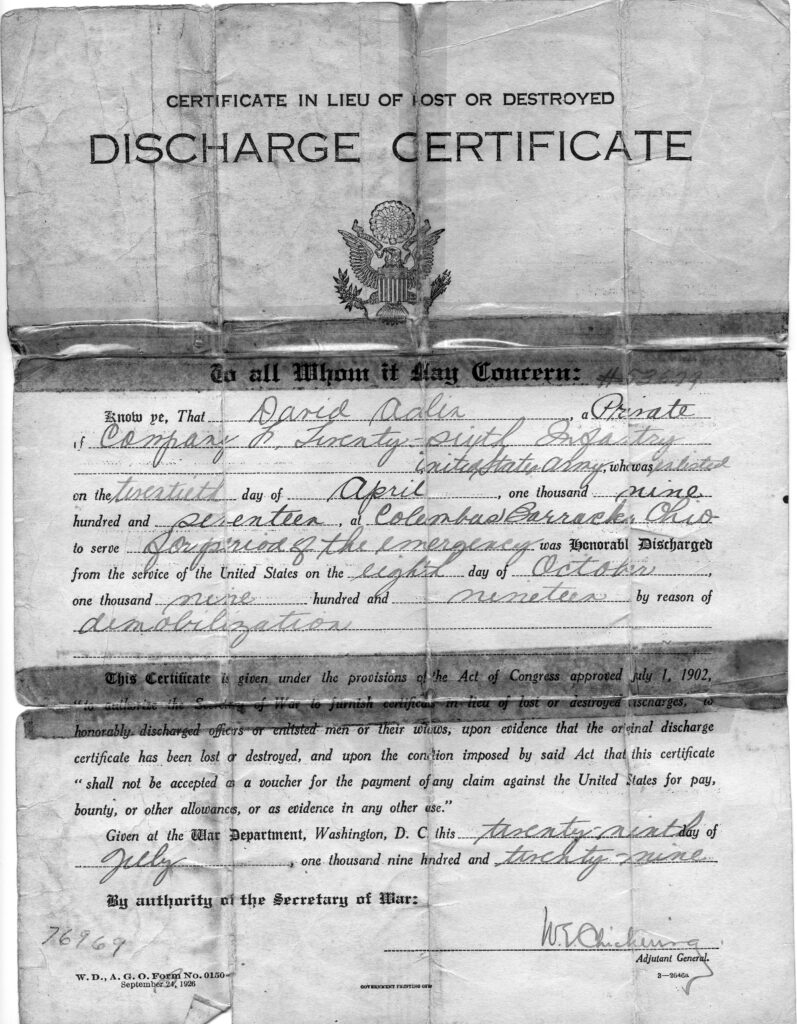 CERTIFICATE IN LIEU OF LOST OR DESTROYED
DISCHARGE CERTIFICATE
To all Whom it May Concern:
Know ye, That David , a Private
of Company Twenty-sixth Infantry
United States Army, who was enlisted
on the twentieth day of April , one thousand nine
hundred and seventeen , at Columbus Barracks Ohio
to serve for period of the emergency was Honorabl Discharged
from the service of the United States on the eighth day of October ,
one thousand nine hundred and nineteen by reason of
demobilization
This Certificate is given under the provisions of the Act of Congress approved July 1, 1902,
"to authorize the Secretary of War to furnish certificates in lieu of lost or destroyed discharges, to
honorably discharged officers or enlisted men or their widows, upon evidence that the original discharge
certificate has been lost or destroyed, and upon the condition imposed by said Act that this certificate
"shall not be accepted as a voucher for the payment of any claim against the United States for pay,
bounty, or other allowances, or as evidence in any other case."
Given at the War Department, Washington, D. C. this twenty-ninth day of
July , one thousand nine hundred and twenty nine
By authority of the Secretary of War:
76969
W.E. Chickering
Adjutant General.
W. D., A. G. O. Form No. 0150
September 24, 1926
GOVERNMENT PRINTING OFFICE
3—2646a